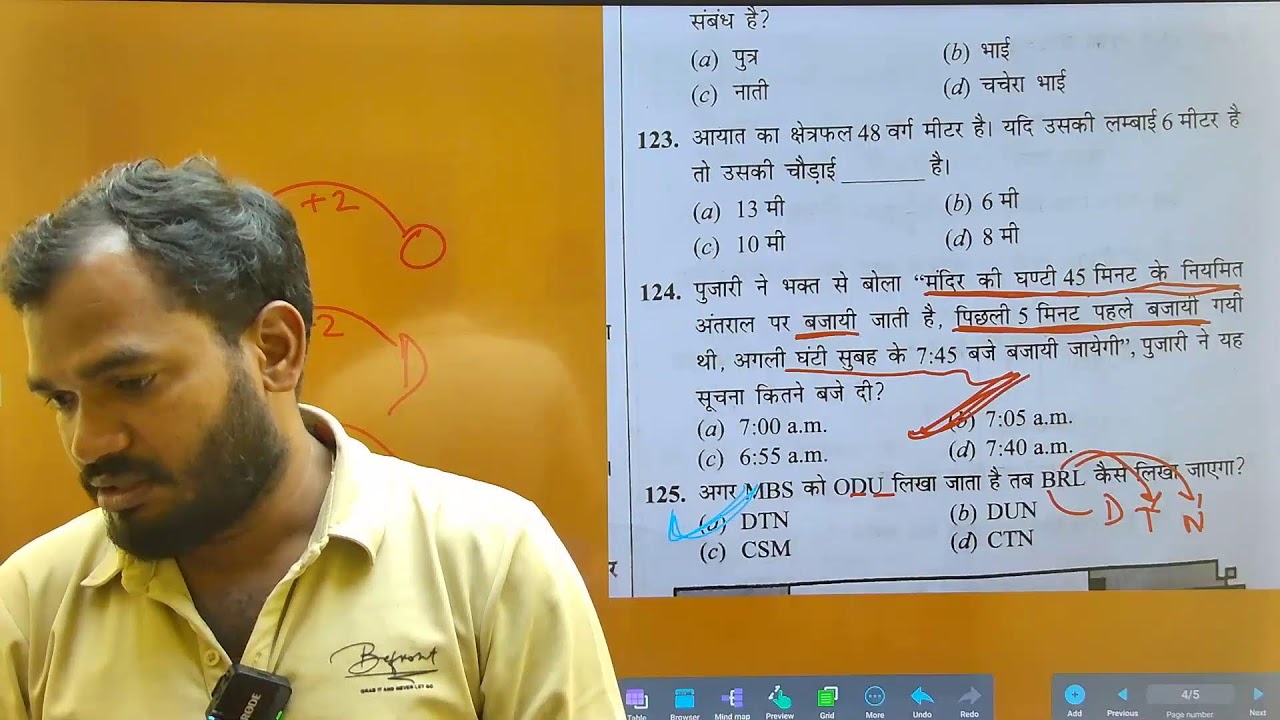 संबंध है?
(a) पुत्र (b) भाई
(c) नाती (d) चचेरा भाई
123. आयात का क्षेत्रफल 48 वर्ग मीटर है। यदि उसकी लम्बाई 6 मीटर है
तो उसकी चौड़ाई ________ है।
(a) 13 मी (b) 6 मी
(c) 10 मी (d) 8 मी
124. पुजारी ने भक्त से बोला “मंदिर की घण्टी 45 मिनट के नियमित
अंतराल पर बजायी जाती है, पिछली 5 मिनट पहले बजायी गयी
थी, अगली घंटी सुबह के 7:45 बजे बजायी जायेगी”, पुजारी ने यह
सूचना कितने बजे दी?
(a) 7:00 a.m. (b) 7:05 a.m.
(c) 6:55 a.m. (d) 7:40 a.m.
125. अगर MBS को ODU लिखा जाता है तब BRL कैसे लिखा जाएगा?
(a) DTN (b) DUN
(c) CSM (d) CTN
D T N
+2
O
+2
D
Befront
GRAB IT AND NEVER LET GO
RODE
Table Browser Mind map Preview Grid More Undo Redo
Add Previous 4/5 Page number Next